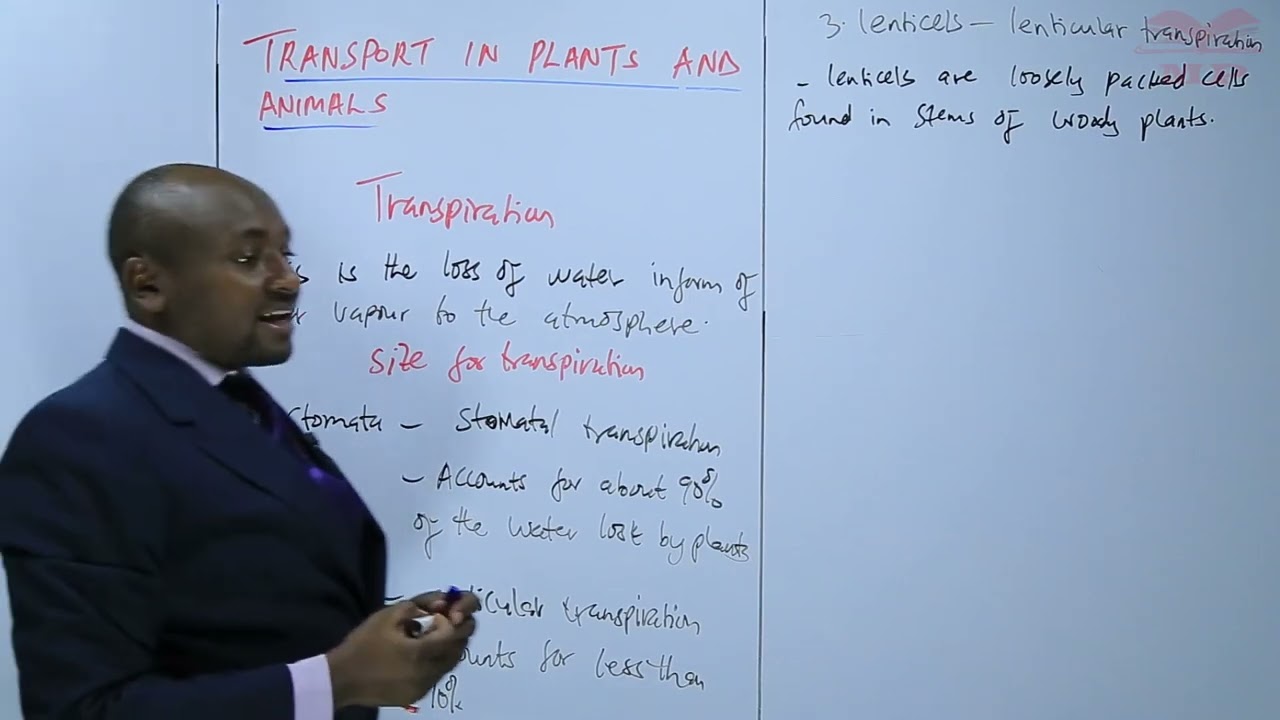 TRANSPORT IN PLANTS AND
ANIMALS
Transpiration
is the loss of water inform of
vapour to the atmosphere.
Size for transpiration
Stomata - Stomatal transpiration
- Accounts for about 90%
of the water lost by plants
transpiration
for less than
10%
3. lenticels - lenticular transpiration
- lenticels are loosely packed cells
found in stems of woody plants.